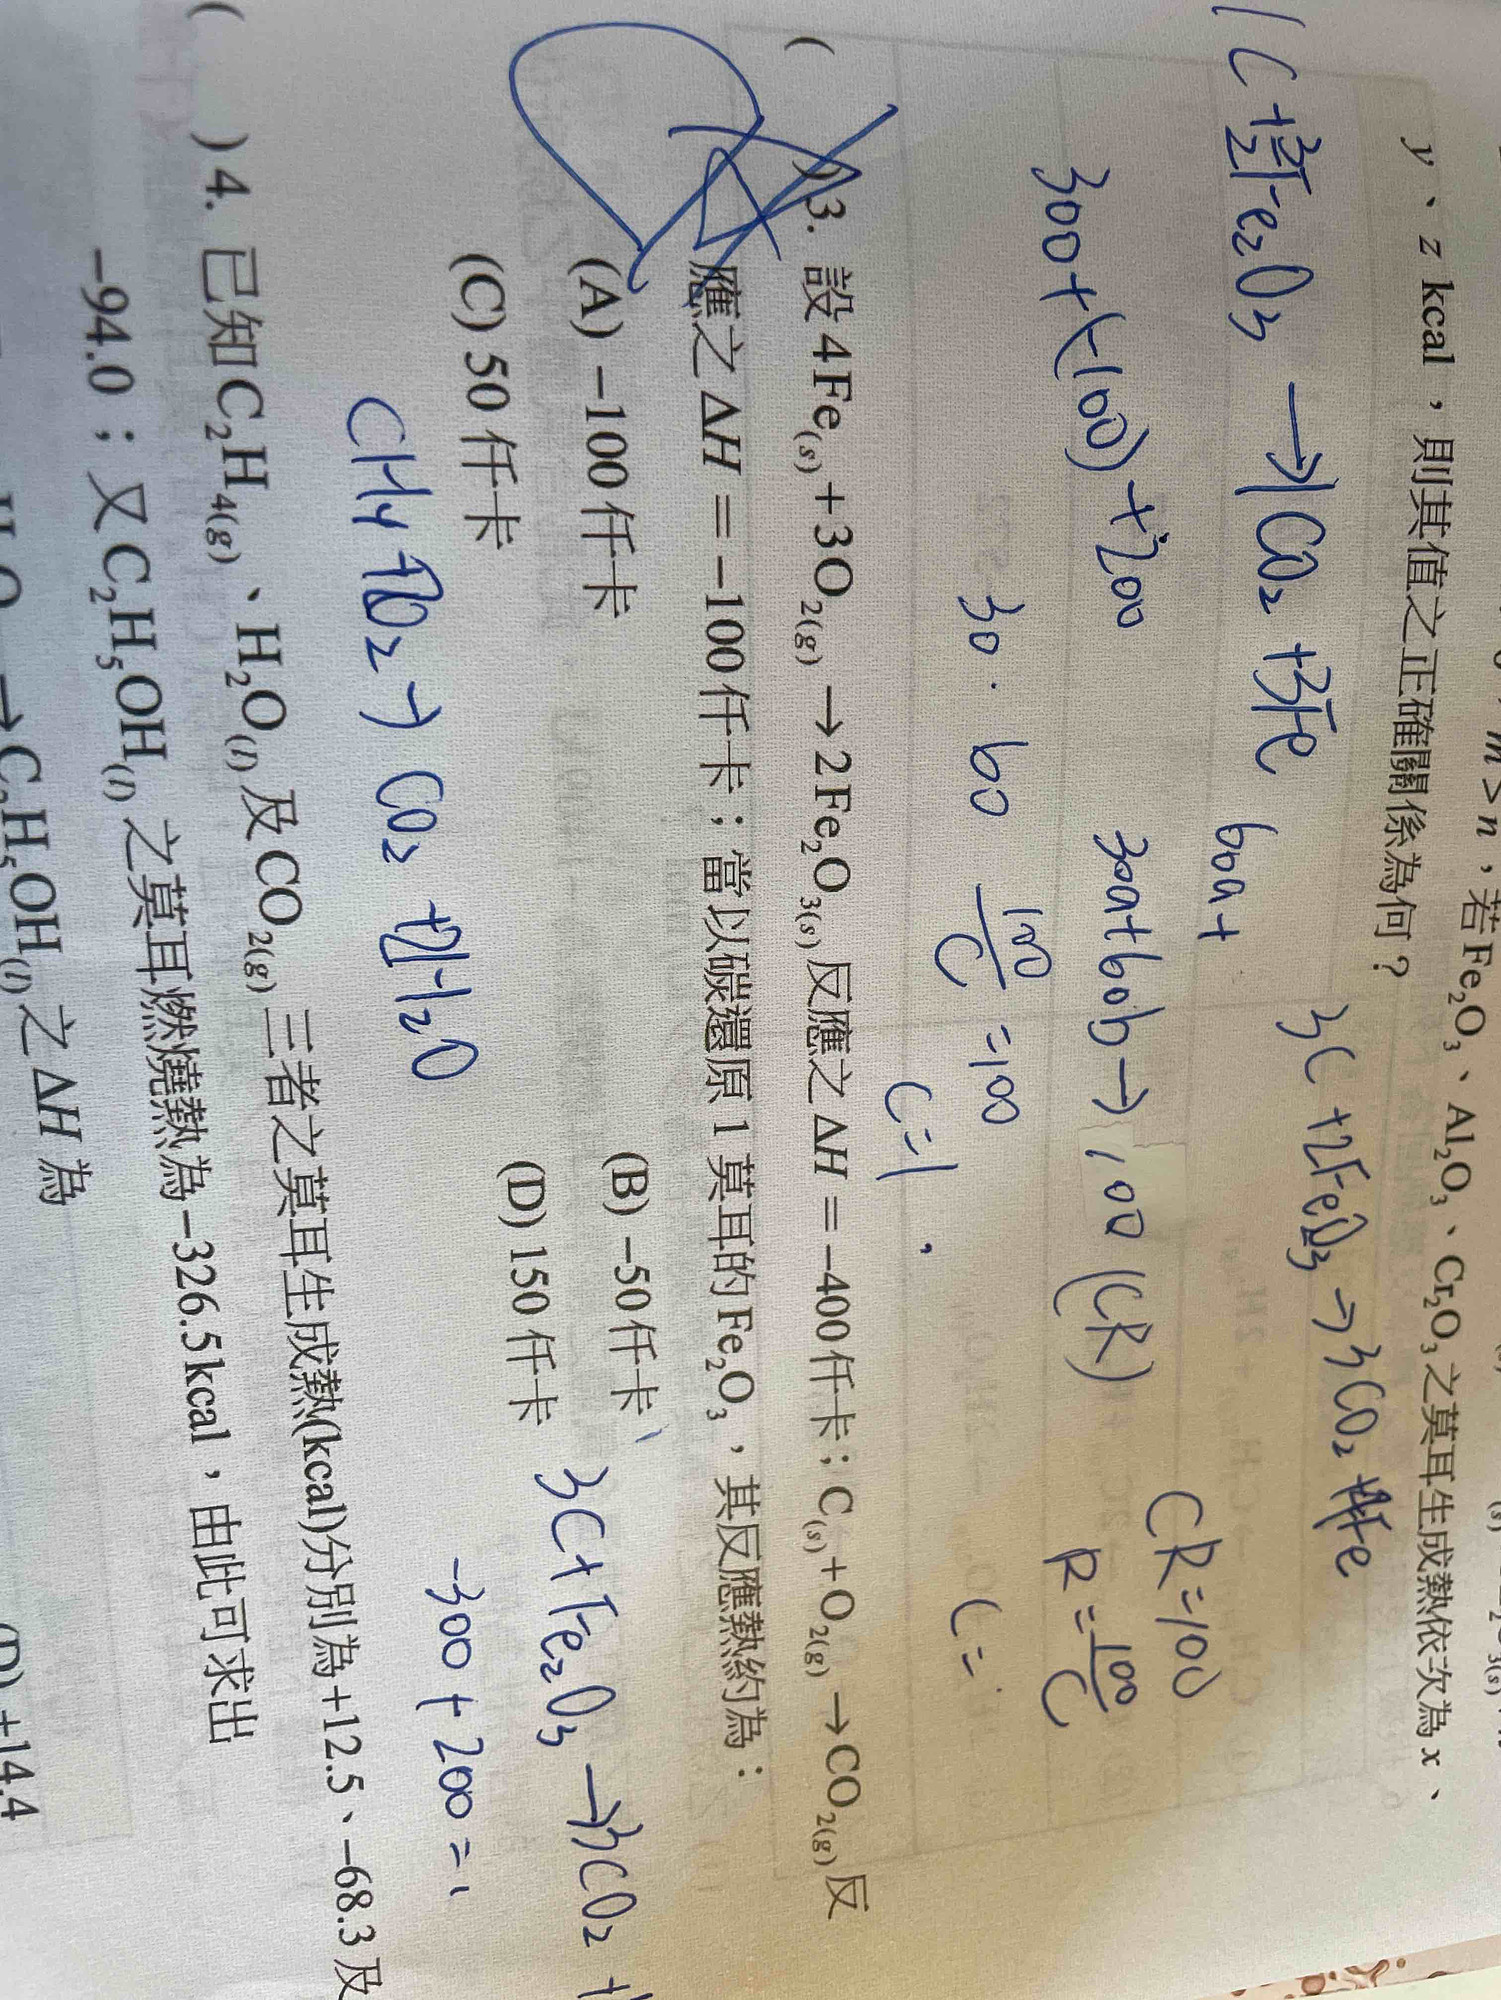 m > n，若Fe₂O₃、Al₂O₃、Cr₂O₃之莫耳生成熱依次為x、
y、z kcal，則其值之正確關係為何？
3C+2Fe₂O₃→3CO₂+4Fe
C+3/2Fe₂O₃→1CO₂+3Fe
60a+
300+(-100)+200
300a+60b→100(CR)
CR=100
R=100/C
30.60
100/C=100
C=1
C=
( )3. 設4Fe(s)+3O₂(g)→2Fe₂O₃(s)反應之ΔH=-400仟卡；C(s)+O₂(g)→CO₂(g)反
應之ΔH=-100仟卡；當以碳還原1莫耳的Fe₂O₃，其反應熱約為：
(A) -100仟卡 (B) -50仟卡
(C) 50仟卡 (D) 150仟卡
3C+Fe₂O₃→3CO₂+
-300+200=
CH₄+O₂→CO₂+2H₂O
( )4. 已知C₂H₄(g)、H₂O(l)及CO₂(g)三者之莫耳生成熱(kcal)分別為+12.5、-68.3及
-94.0；又C₂H₅OH(l)之莫耳燃燒熱為-326.5kcal，由此可求出
→C₂H₅OH(l)之ΔH為
+14.4